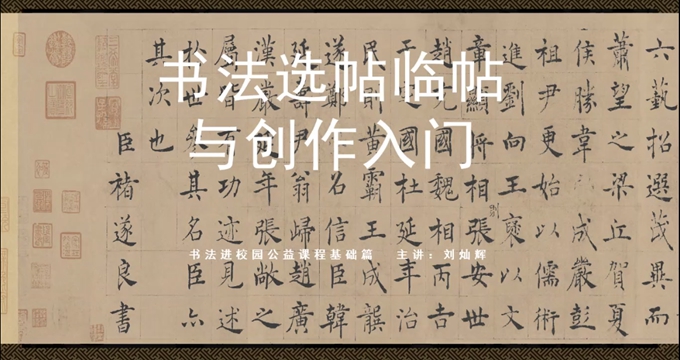 书法选帖临帖
与创作入门
书法进校园公益课程基础篇 主讲：刘灿辉
六藝招選茂異而
蕭望之梁丘賀夏
侯勝韋成嚴彭
祖尹更始以儒術
進劉向王褒以文
章顯將相張安世
趙充國魏相丙吉
于定國杜延年治
民則黃霸王成龔
遂鄭信臣韓
延壽尹翁歸趙廣
漢嚴年張敞之
屬皆功迹見述
於世其名臣亦
其次也
臣褚遂良書